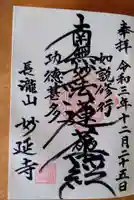 奉拝 令和三年十二月二五日
如説修行
南無妙法蓮華経
功徳甚多
長瀧山 妙延寺